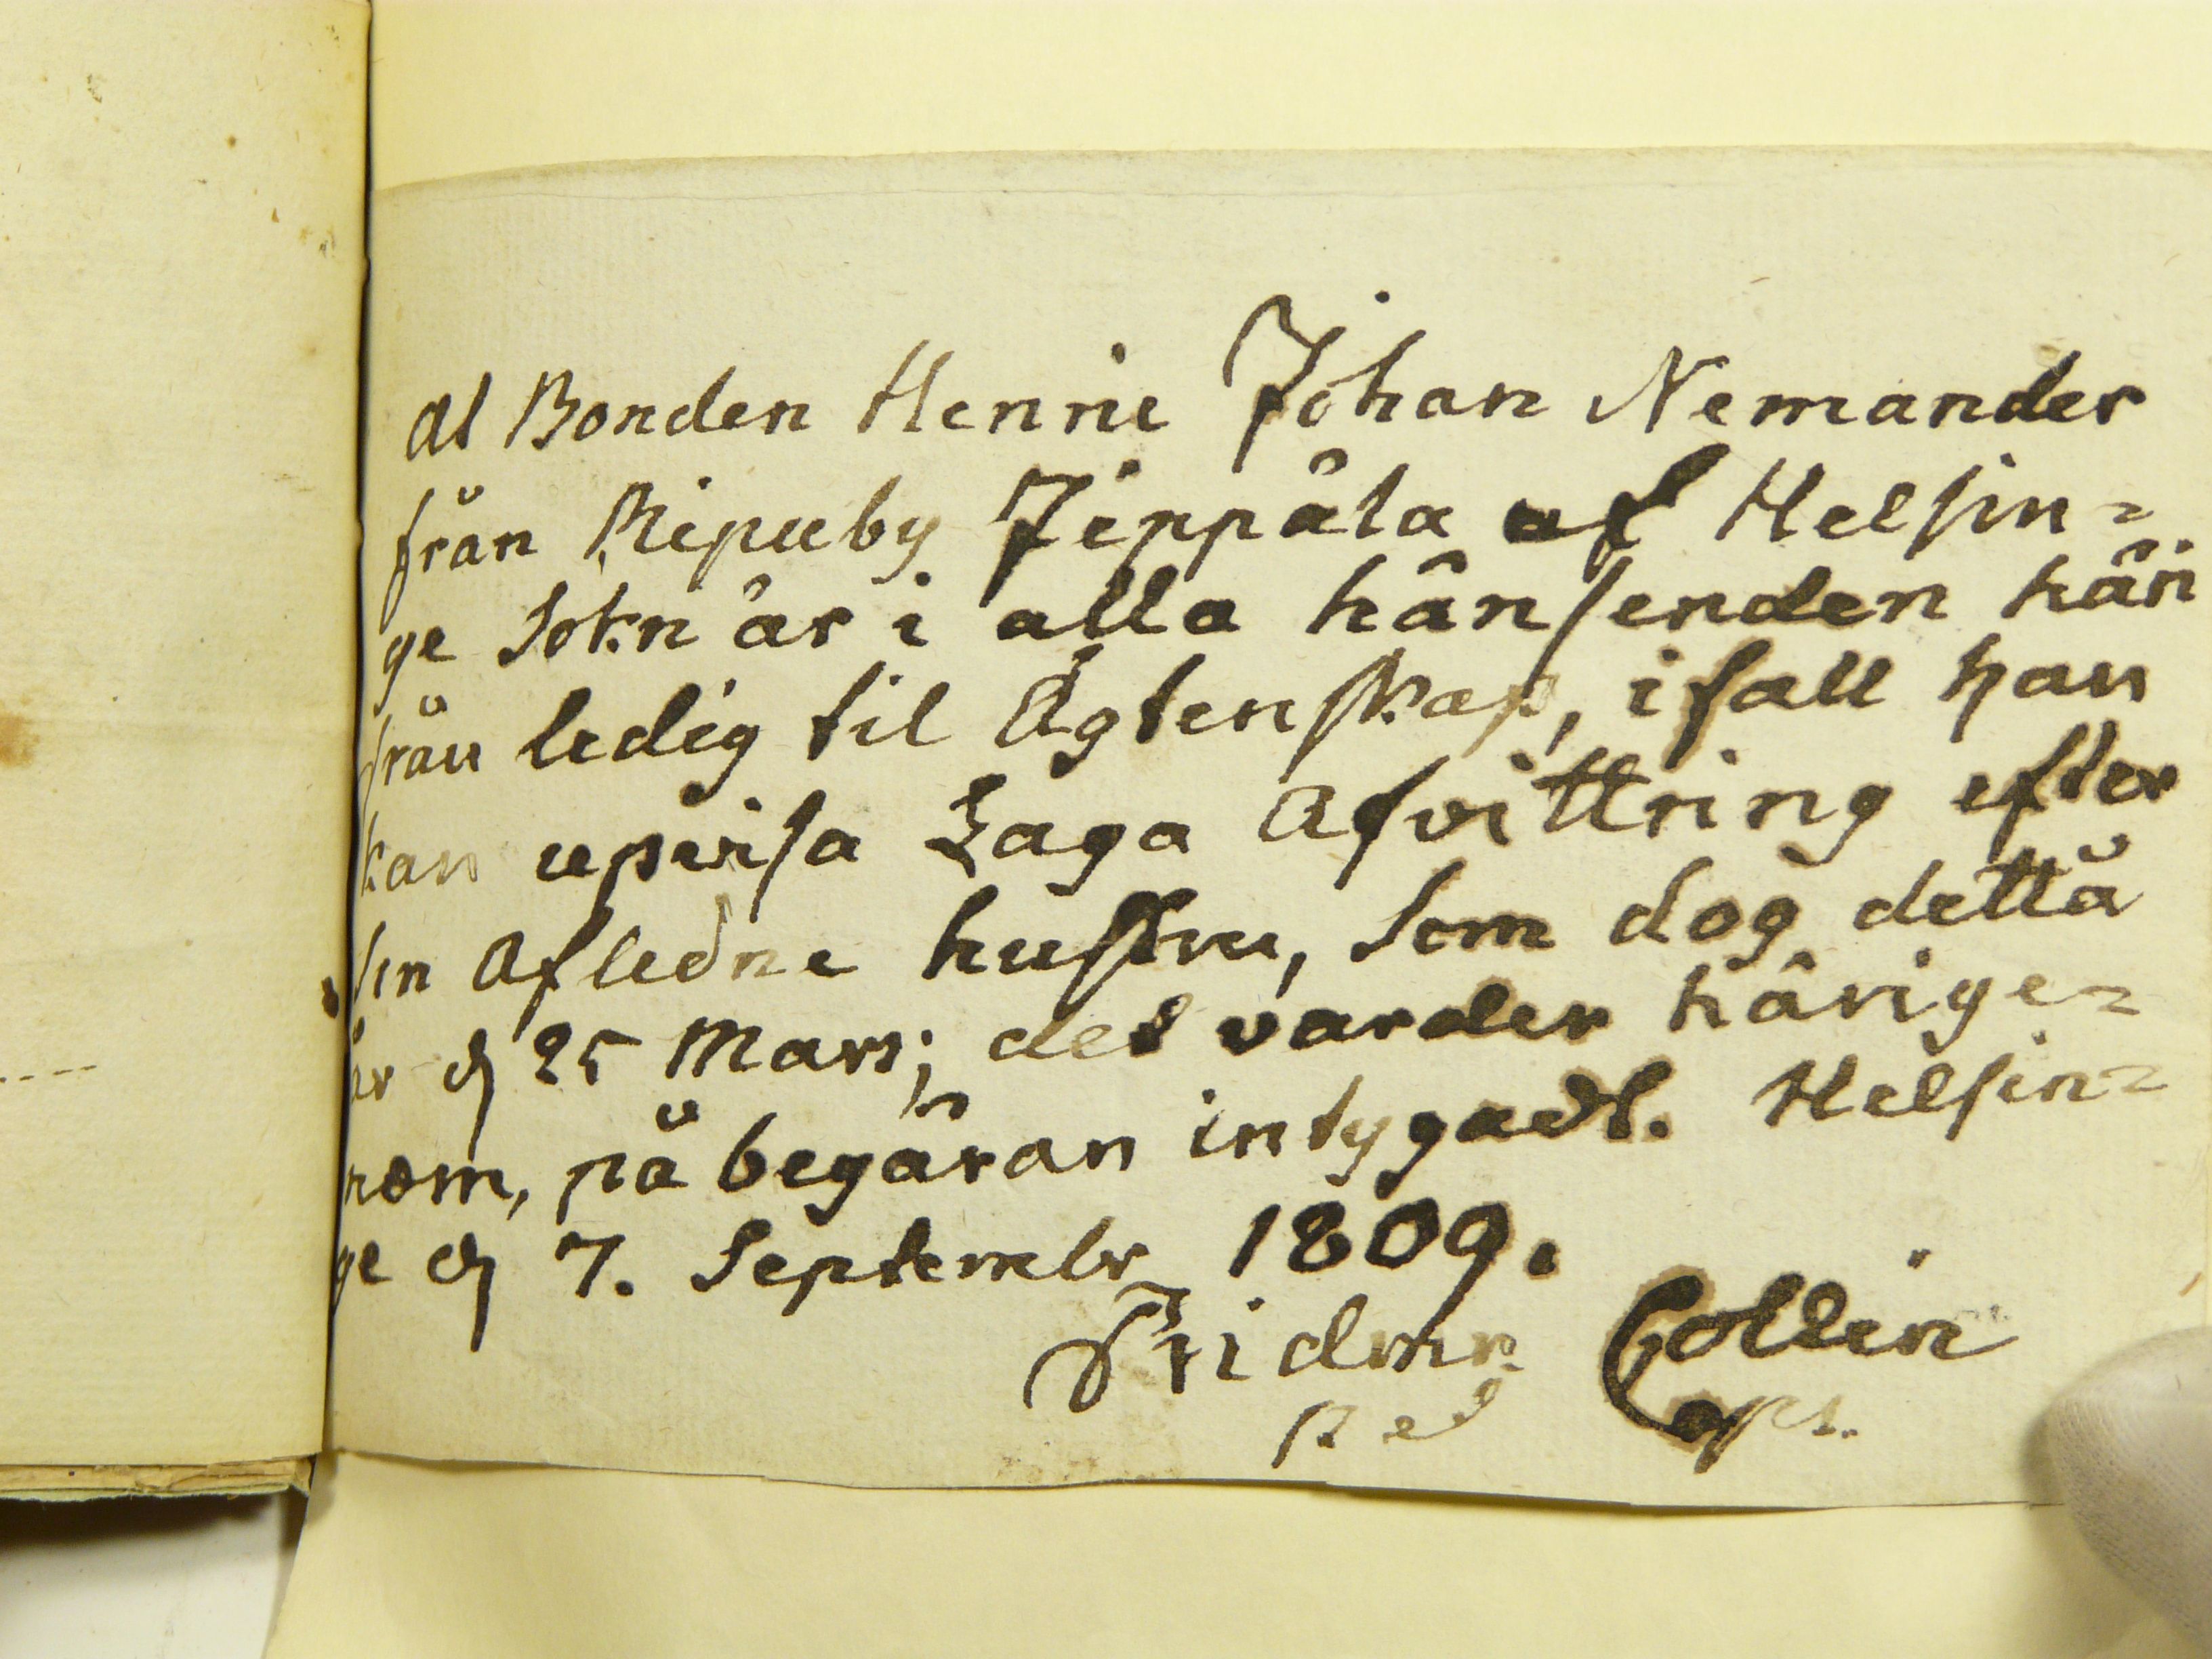 At Bonden Henric Johan Nemander
från Ripuby Jeppäla af Helsin=
ge Sokn är i alla hänseenden här
från ledig til Ägtenskap, ifall han
kan upvisa Laga Afvittring efter
sin Afledne hustru, Som dog detta
år d 25 Mars; det varder härige=
nom, på begäran intygadt. Helsin=
ge d 7. Septembr 1809.
Collin